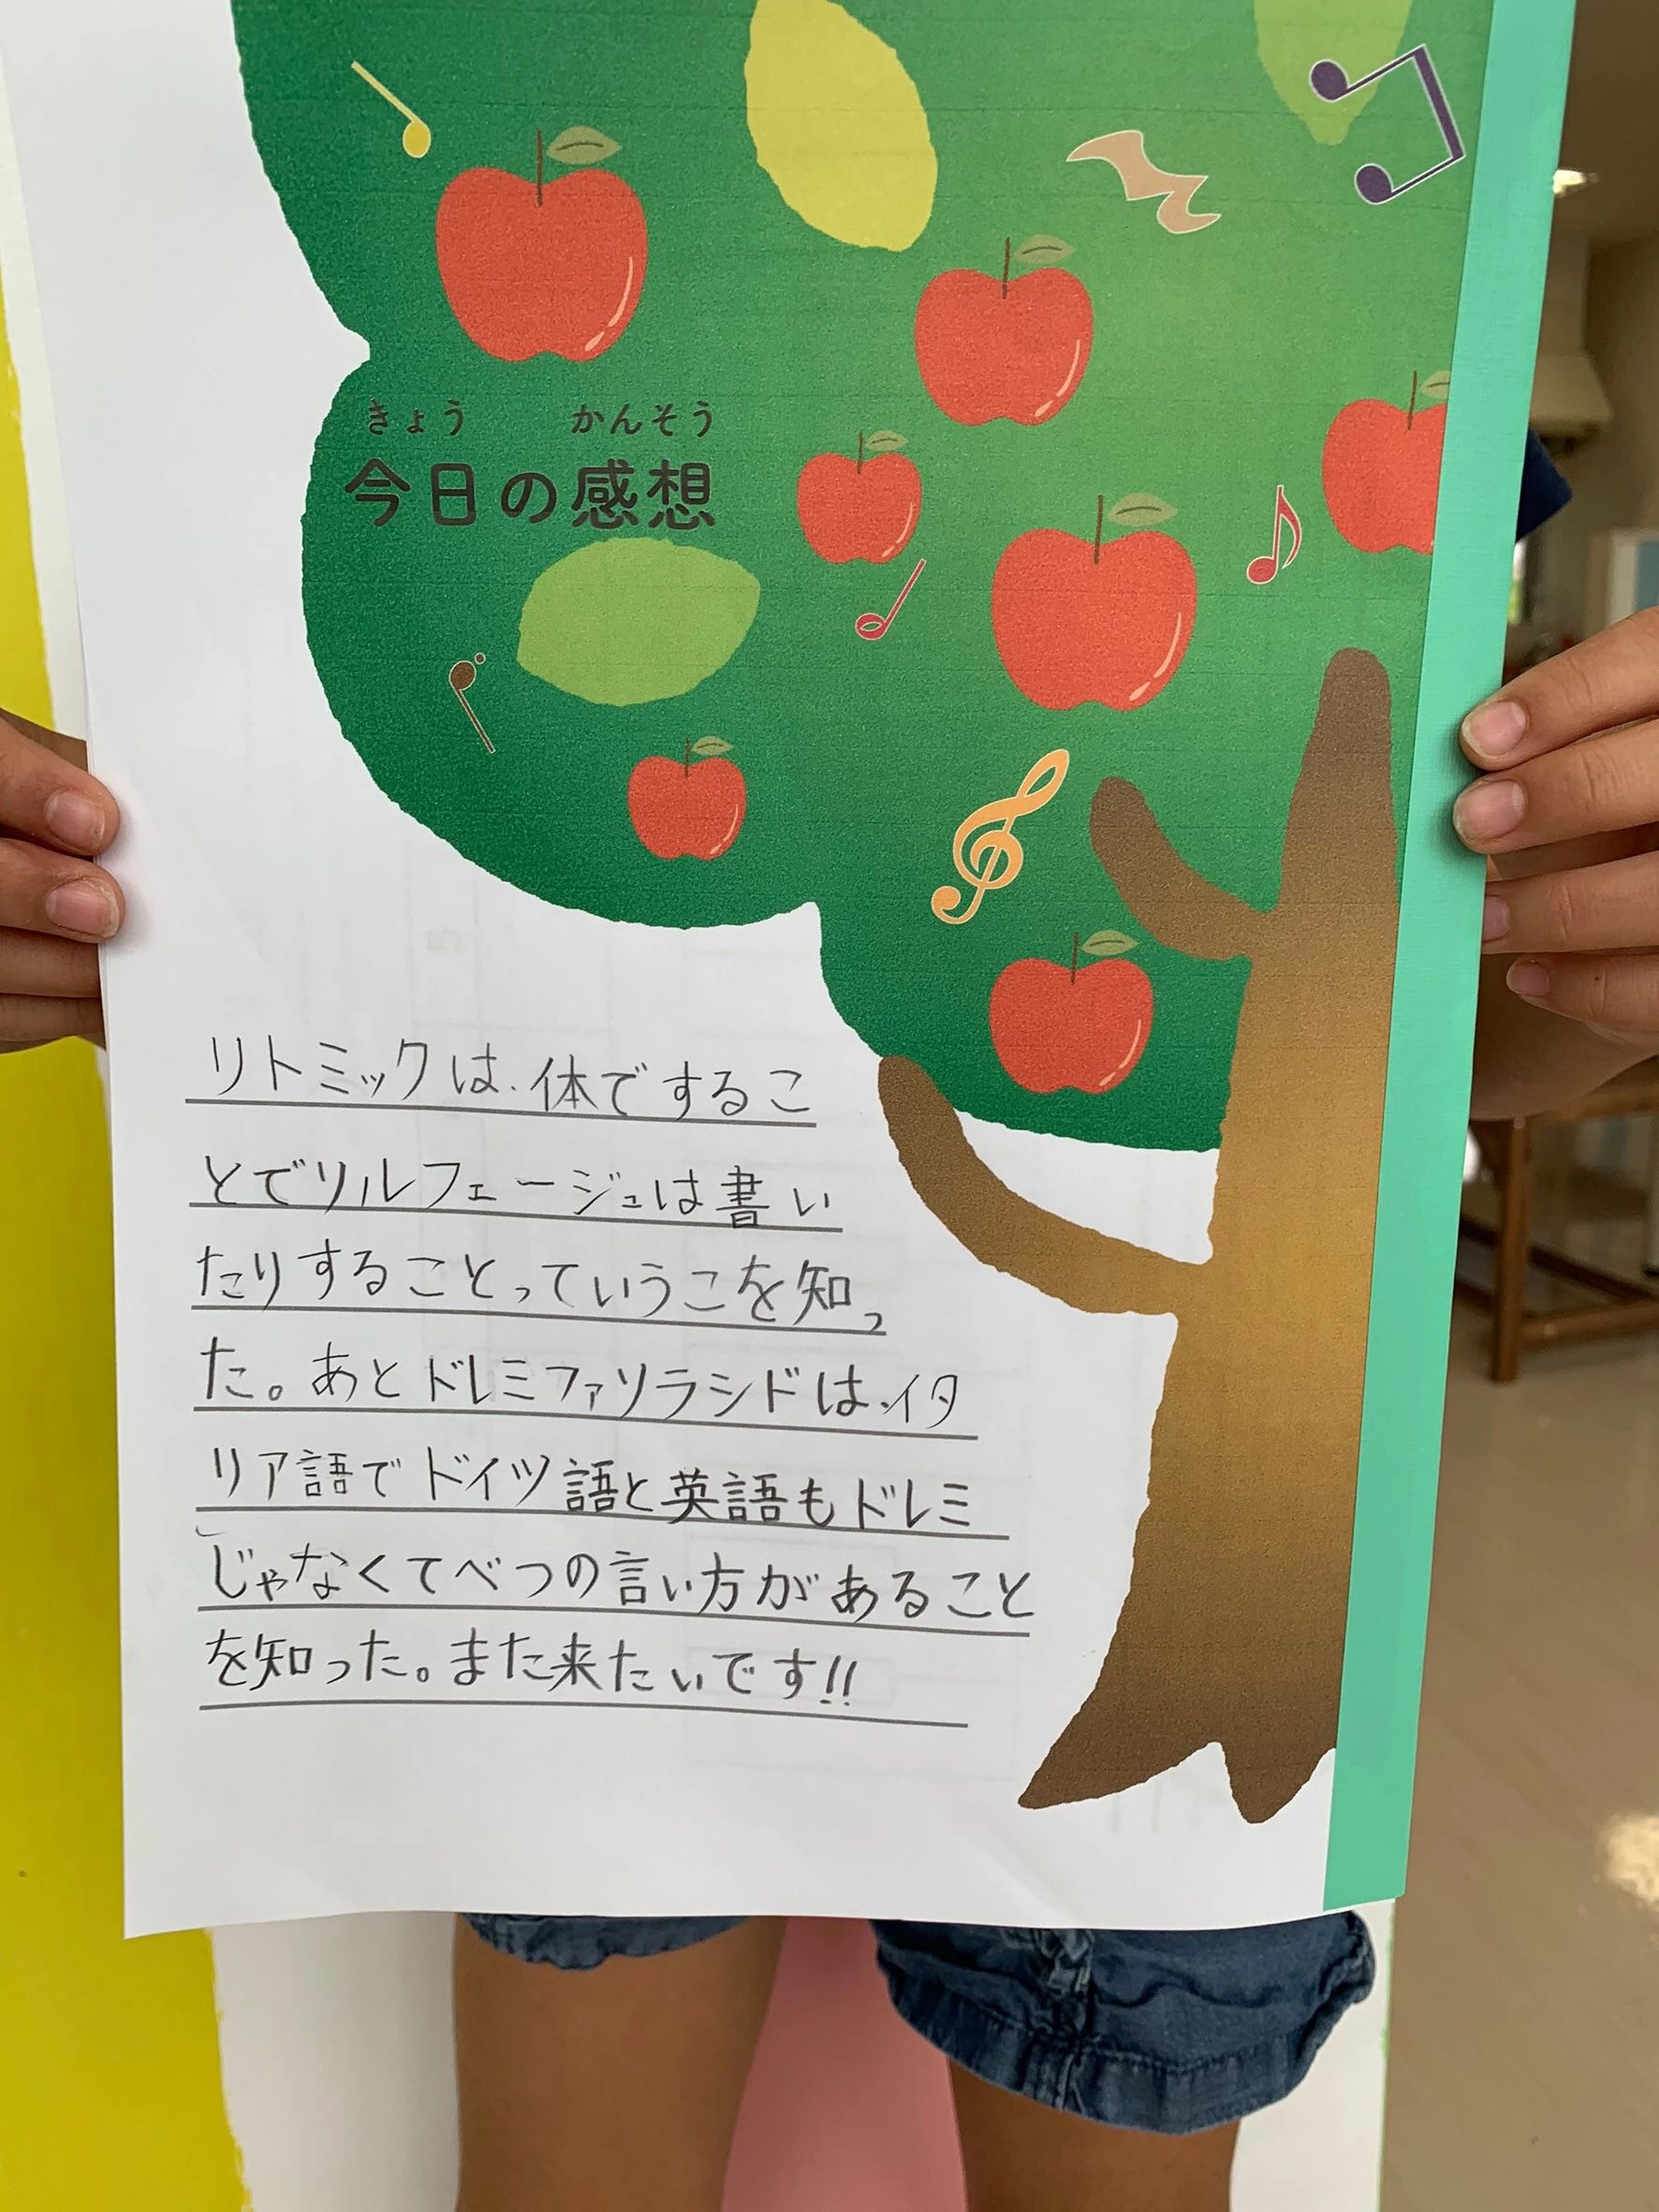 きょう かんそう
今日の感想
リトミックは、体でするこ
とでソルフェージュは書い
たりすることっていうこを知っ
た。あとドレミファソラシドは、イタ
リア語でドイツ語と英語もドレミ
じゃなくてべつの言い方があること
を知った。また来たいです!!